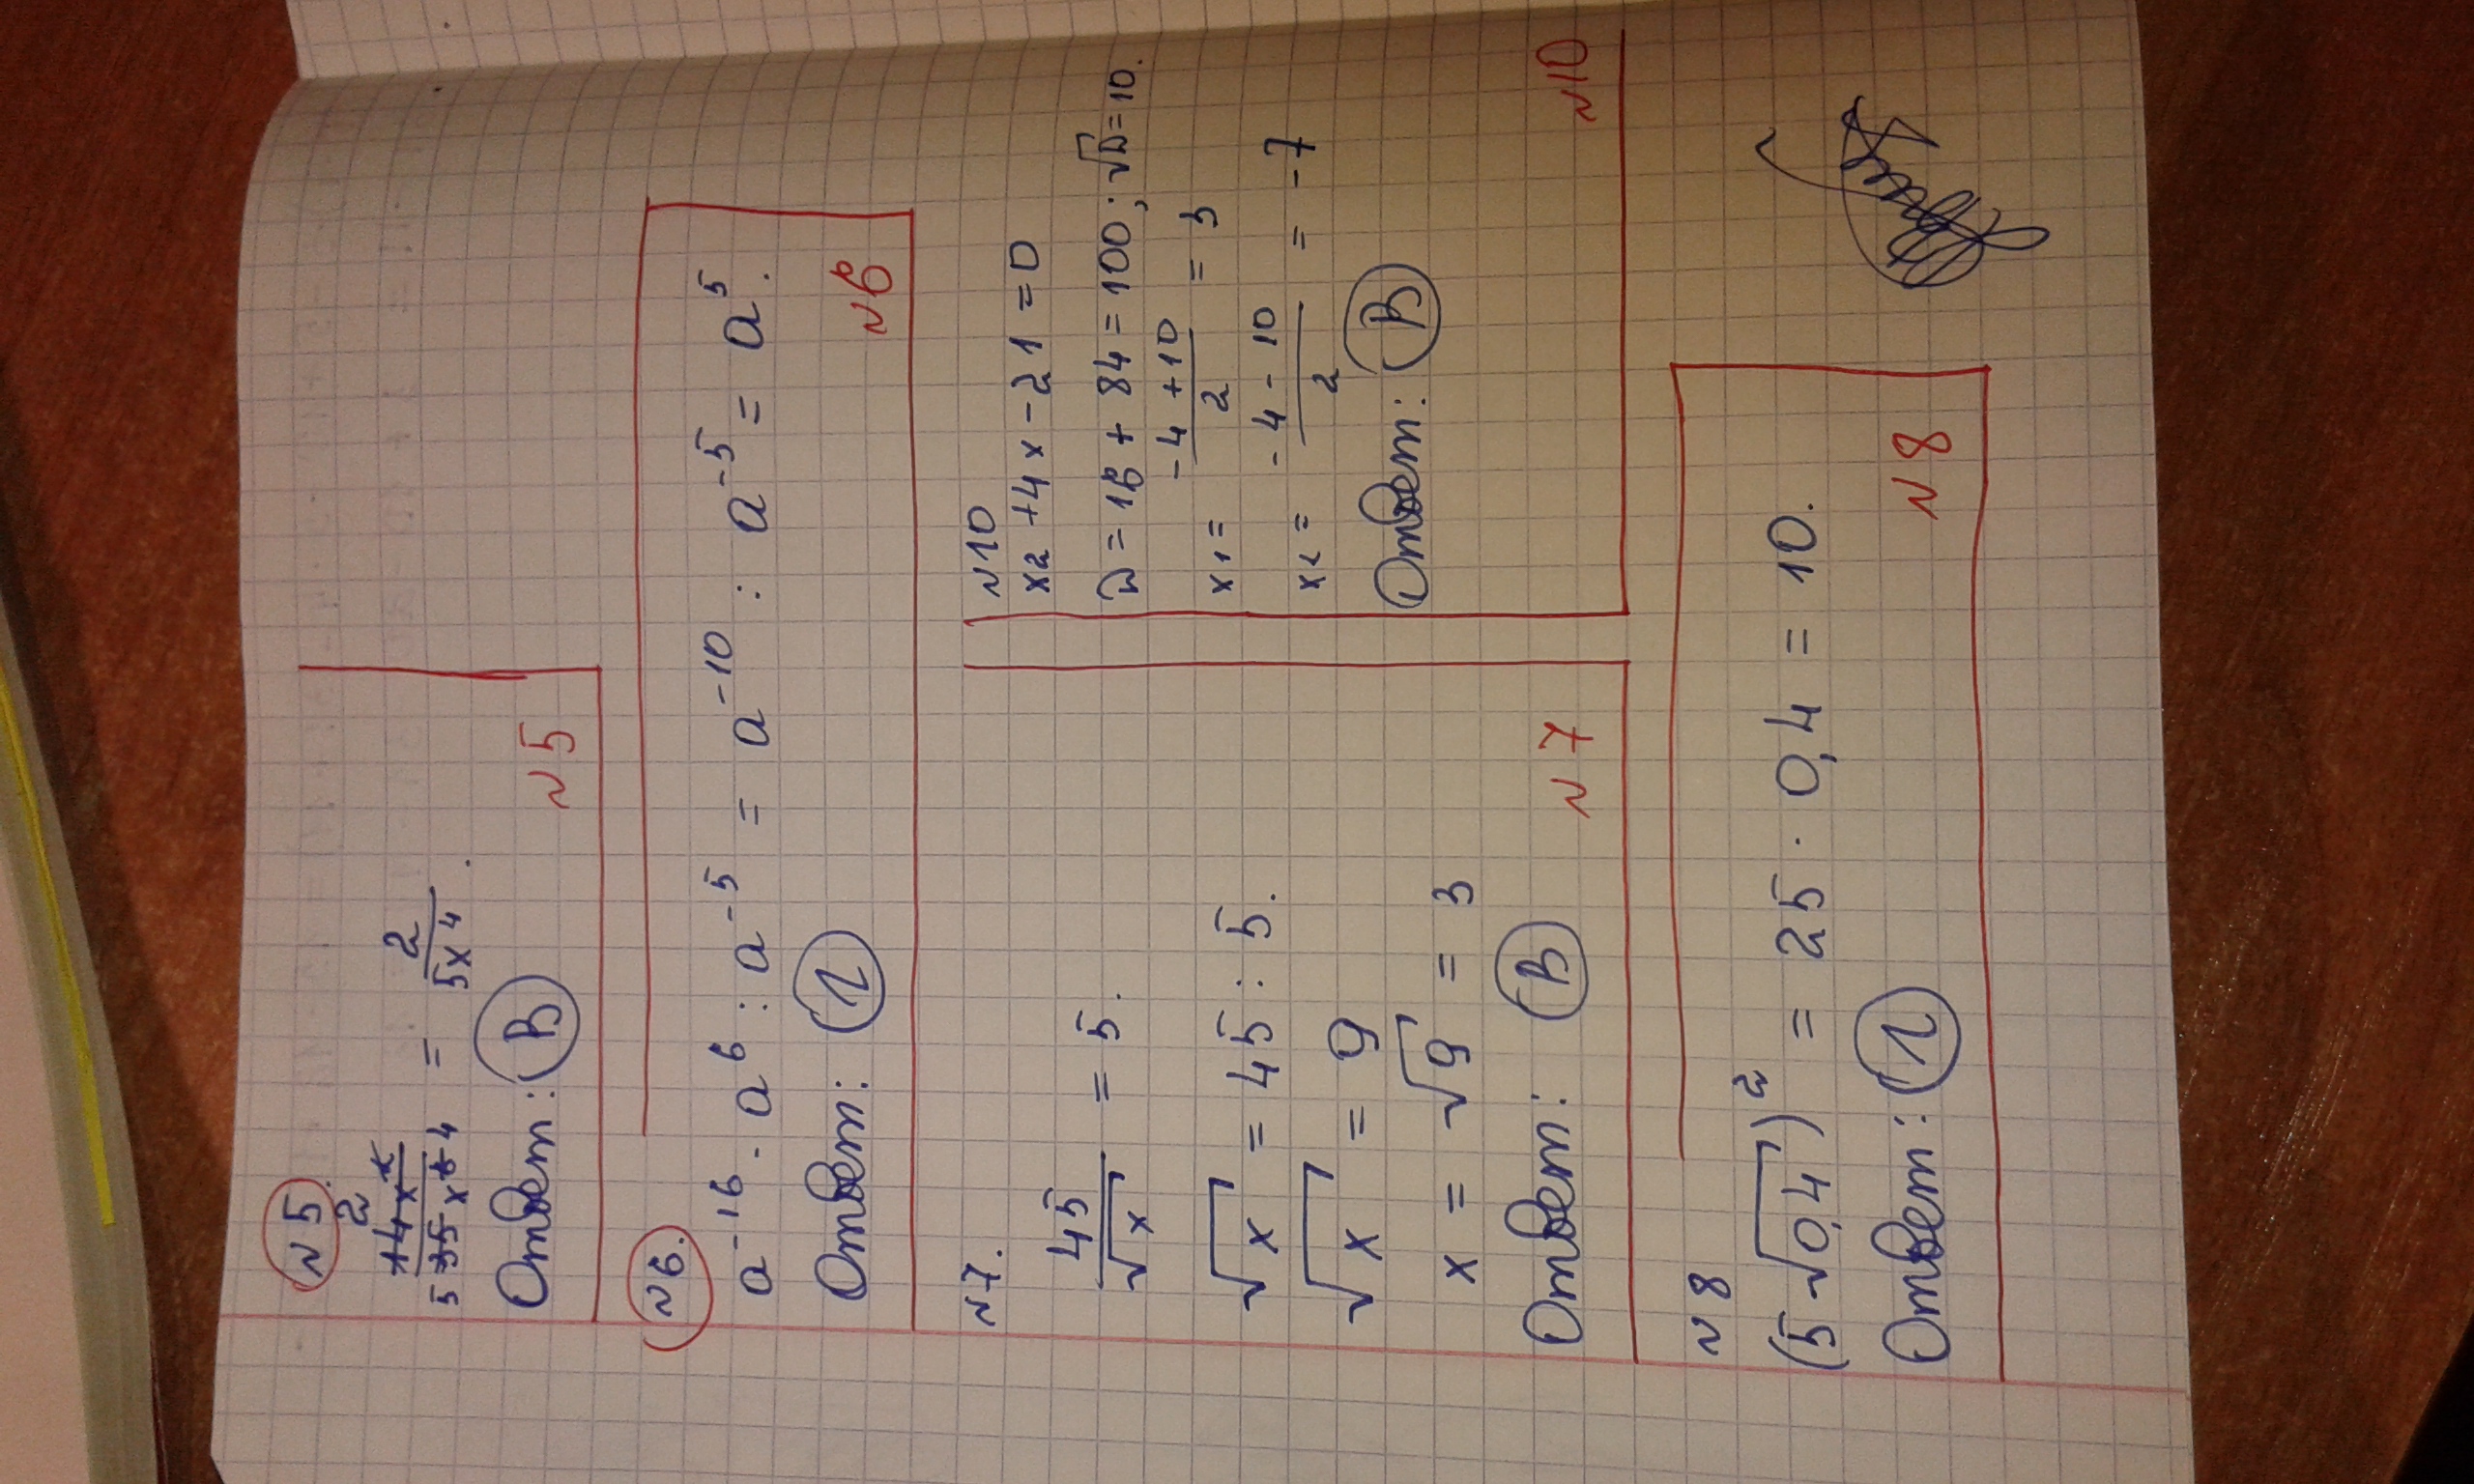 №5.
2
14x²/5 35 x⁶ 4 = 2/5x⁴.
Ответ: В
№5
№6.
a⁻¹⁶ · a⁶ : a⁻⁵ = a⁻¹⁰ : a⁻⁵ = a⁵.
Ответ: 1
№6
№7.
45/√x = 5.
√x = 45 : 5.
√x = 9
x = √9 = 3
Ответ: В
№7
№10
x2 + 4x - 21 = 0
D = 16 + 84 = 100; √D = 10.
x₁ = -4 + 10/2 = 3
x₂ = -4 - 10/2 = -7
Ответ: В
№10
№8
(5√0,4)² = 25 · 0,4 = 10.
Ответ: 1
№8